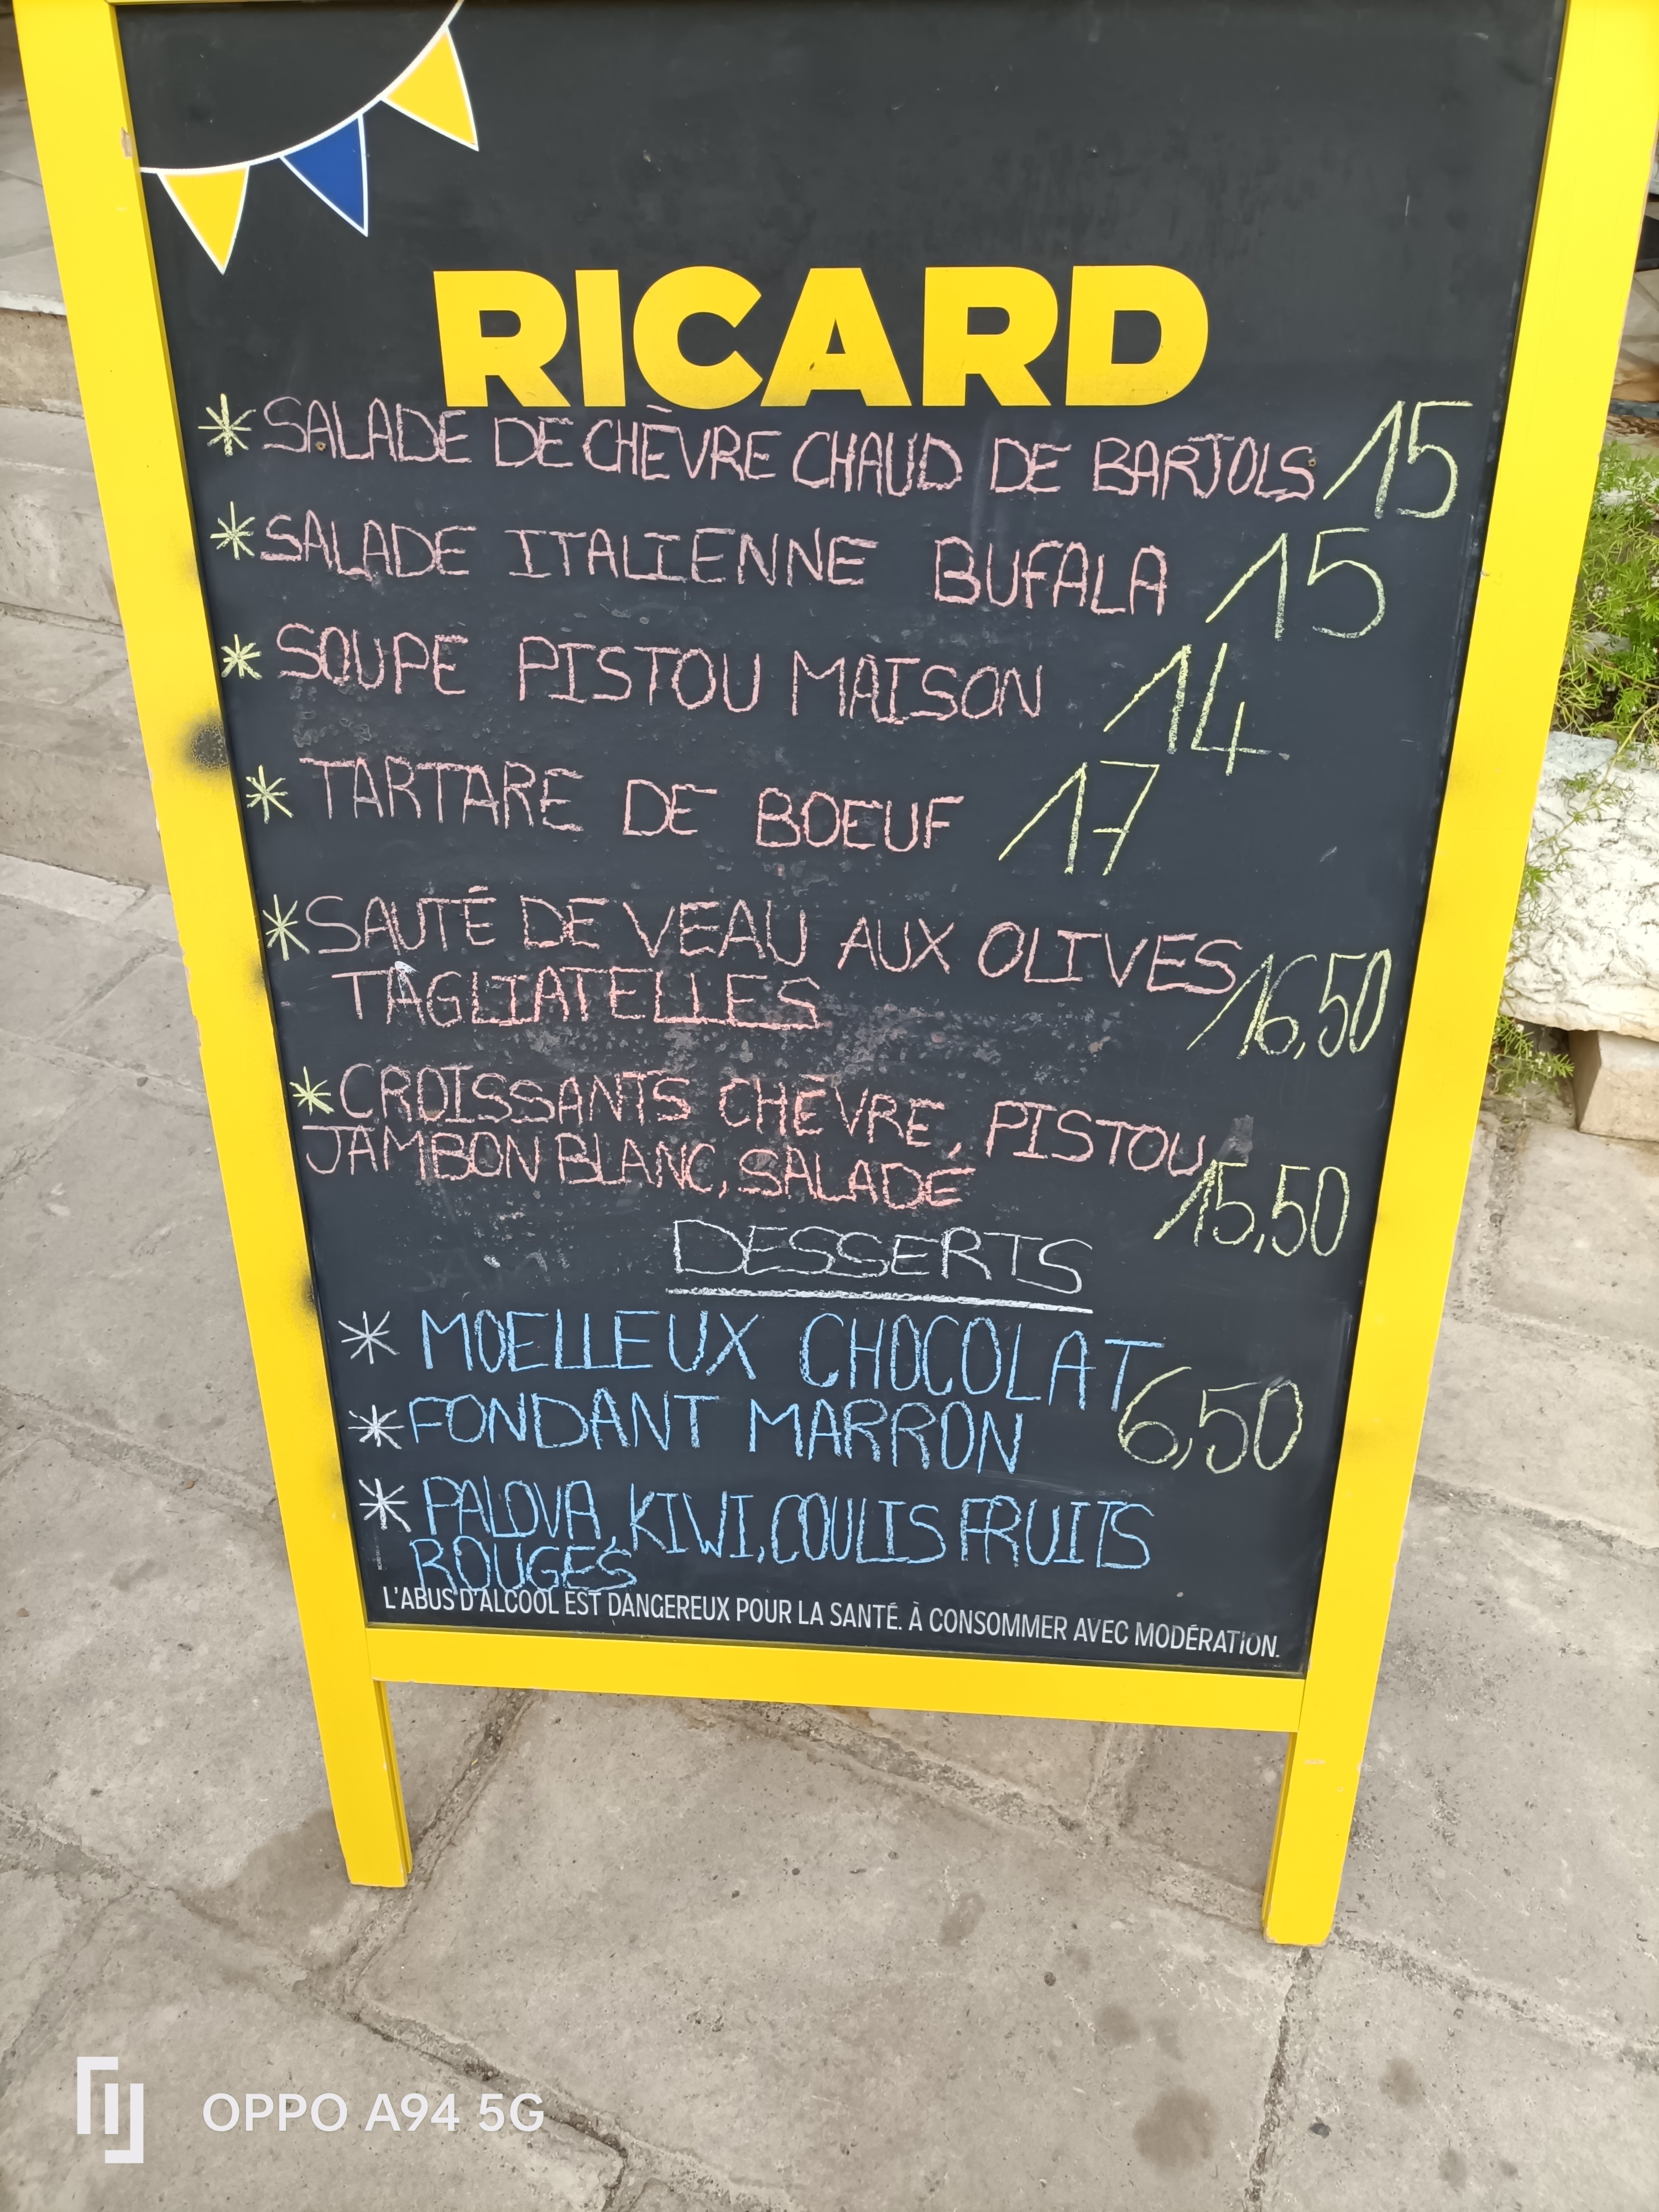 RICARD
* SALADE DE CHÈVRE CHAUD DE BARJOLS 15
* SALADE ITALIENNE BUFALA 15
* SOUPE PISTOU MAISON 14
* TARTARE DE BOEUF 17
* SAUTÉ DE VEAU AUX OLIVES
TAGLIATELLES 16,50
* CROISSANTS CHÈVRE, PISTOU
JAMBON BLANC, SALADE 15,50
DESSERTS
* MOELLEUX CHOCOLAT
* FONDANT MARRON 6,50
* PALOVA, KIWI, COULIS FRUITS
ROUGES
L'ABUS D'ALCOOL EST DANGEREUX POUR LA SANTÉ. À CONSOMMER AVEC MODÉRATION.
OPPO A94 5G